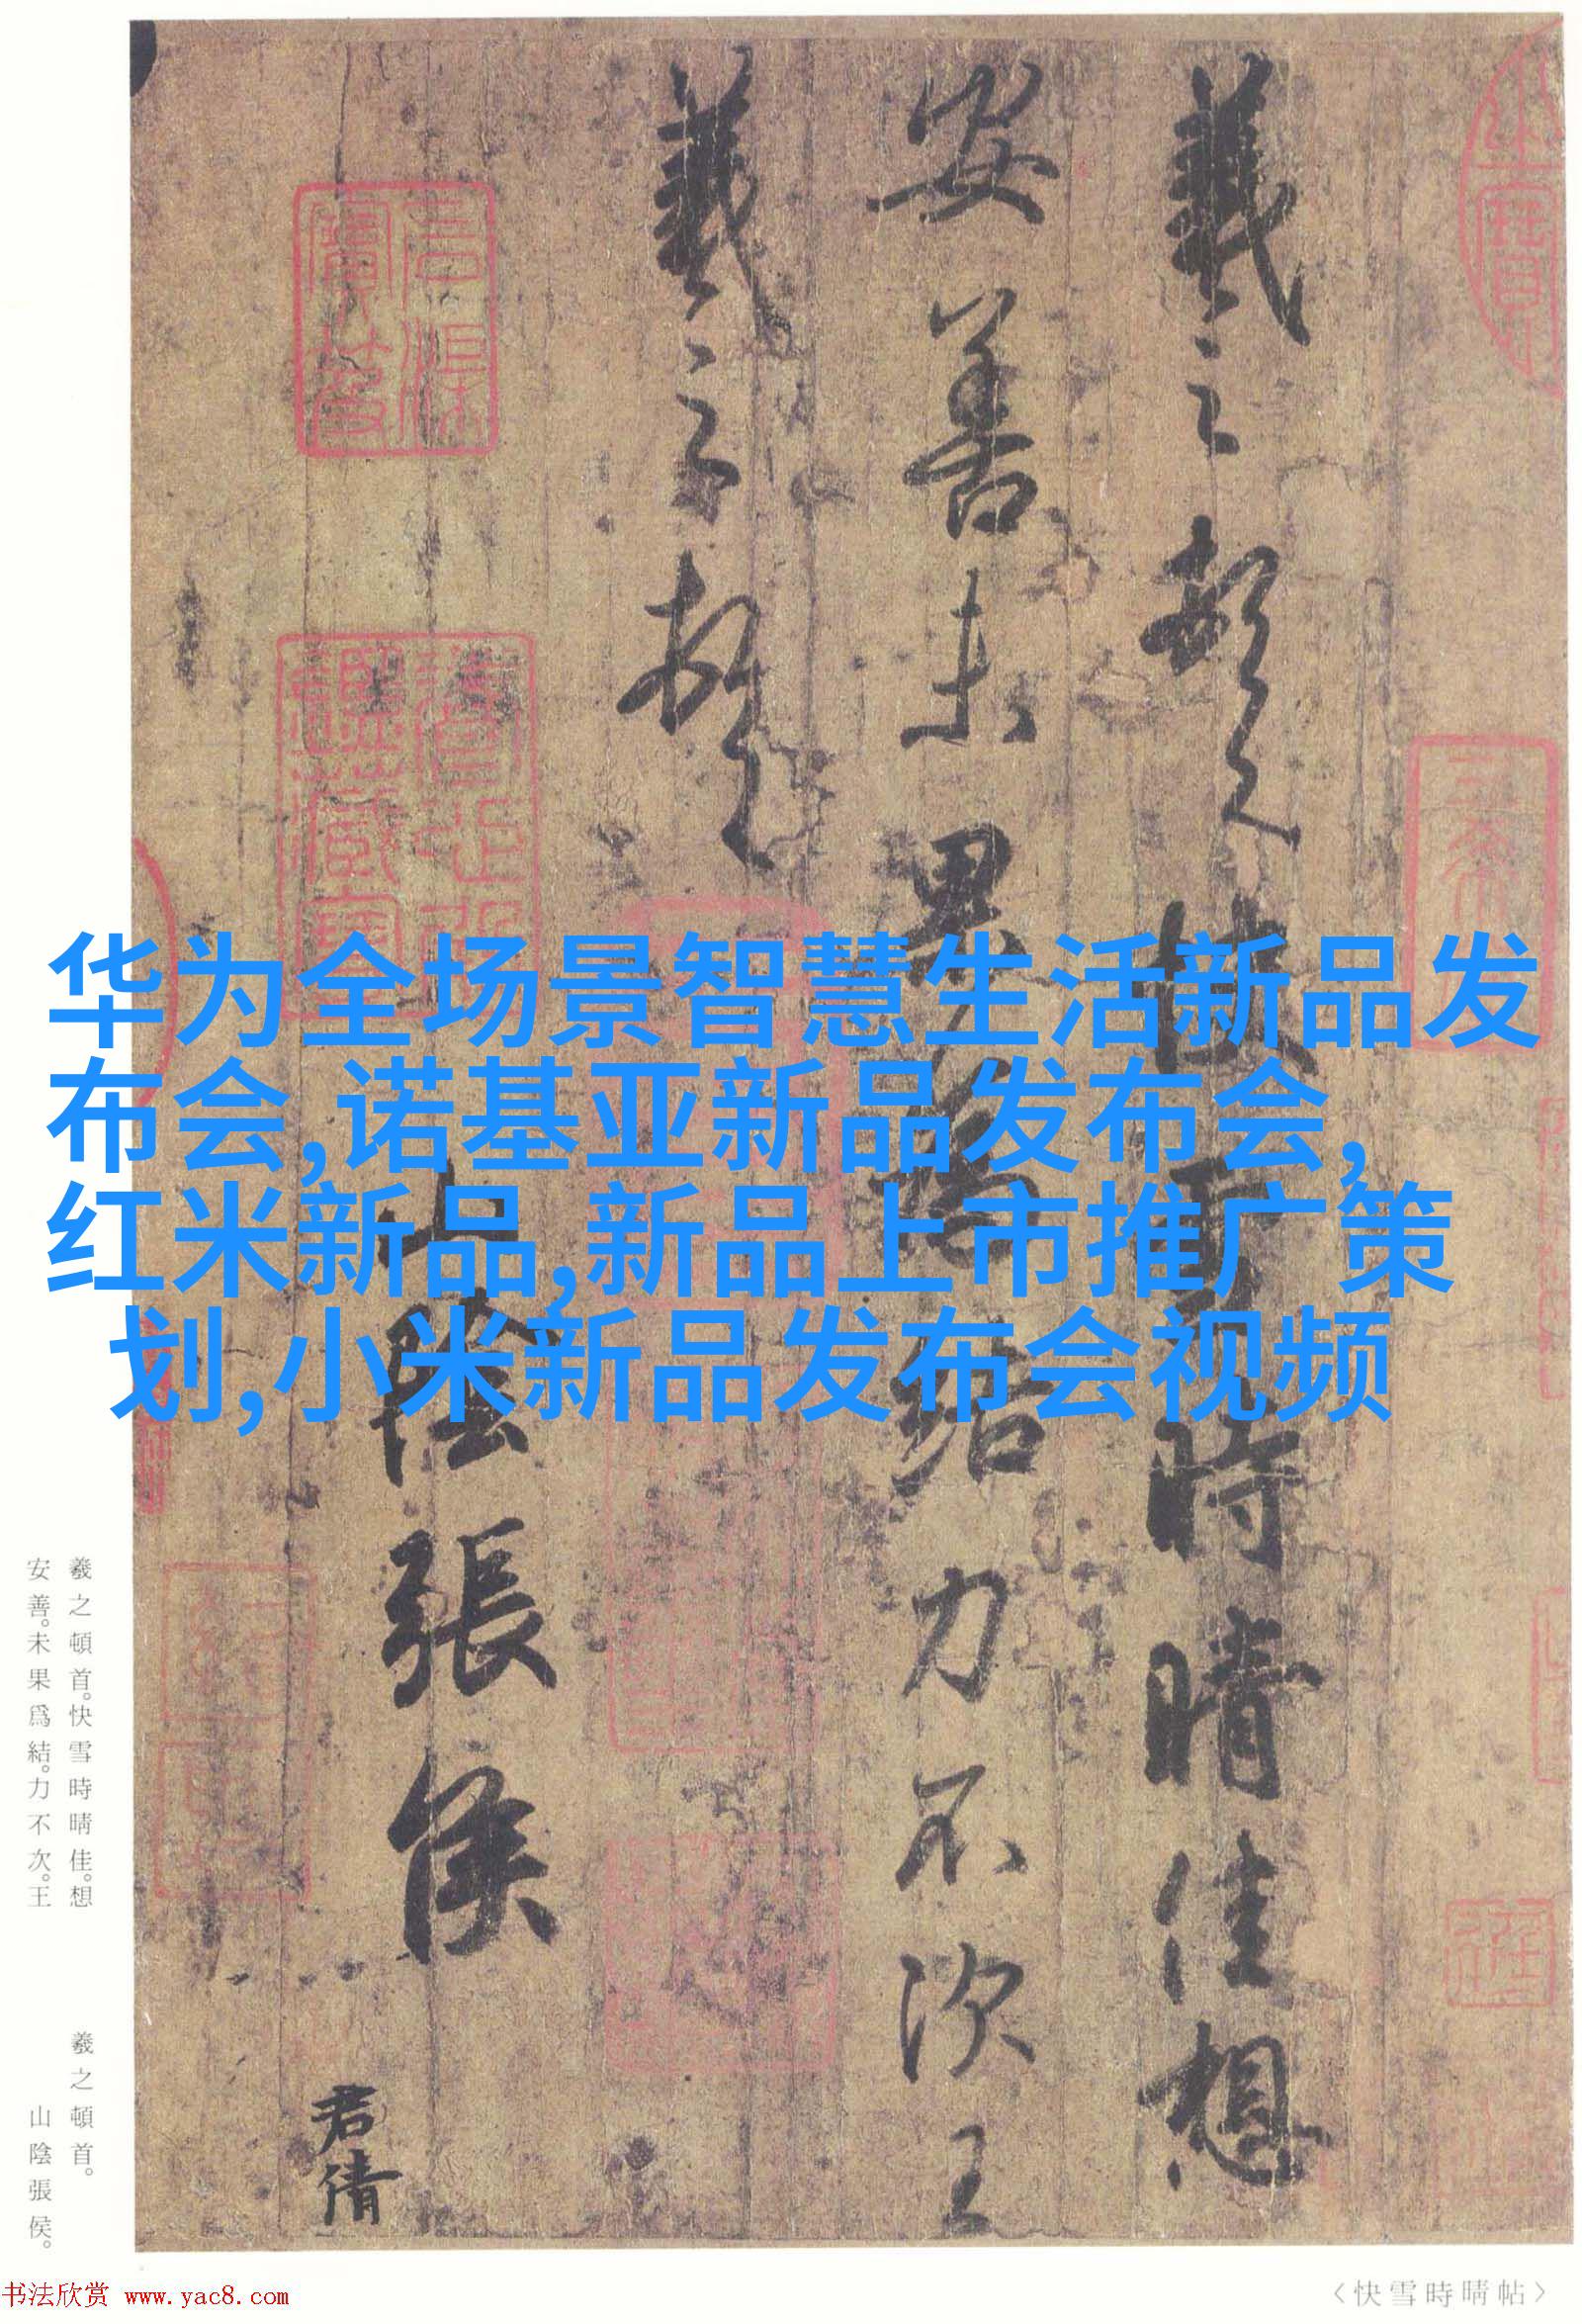 華为全场景智慧生活新品发
布会,诺基亚新品发布会,
红米新品,新品上市推广策
划,小米新品发布会视频
羲之頓首快雪時晴佳想
安善未果為結力不次王
羲之頓首
山陰張侯
君倩
羲之頓首。快雪時晴佳。想
安善。未果爲結。力不次。王
羲之頓首。
山陰張侯。
书法欣赏 www.yac8.com
〈快雪時晴帖〉